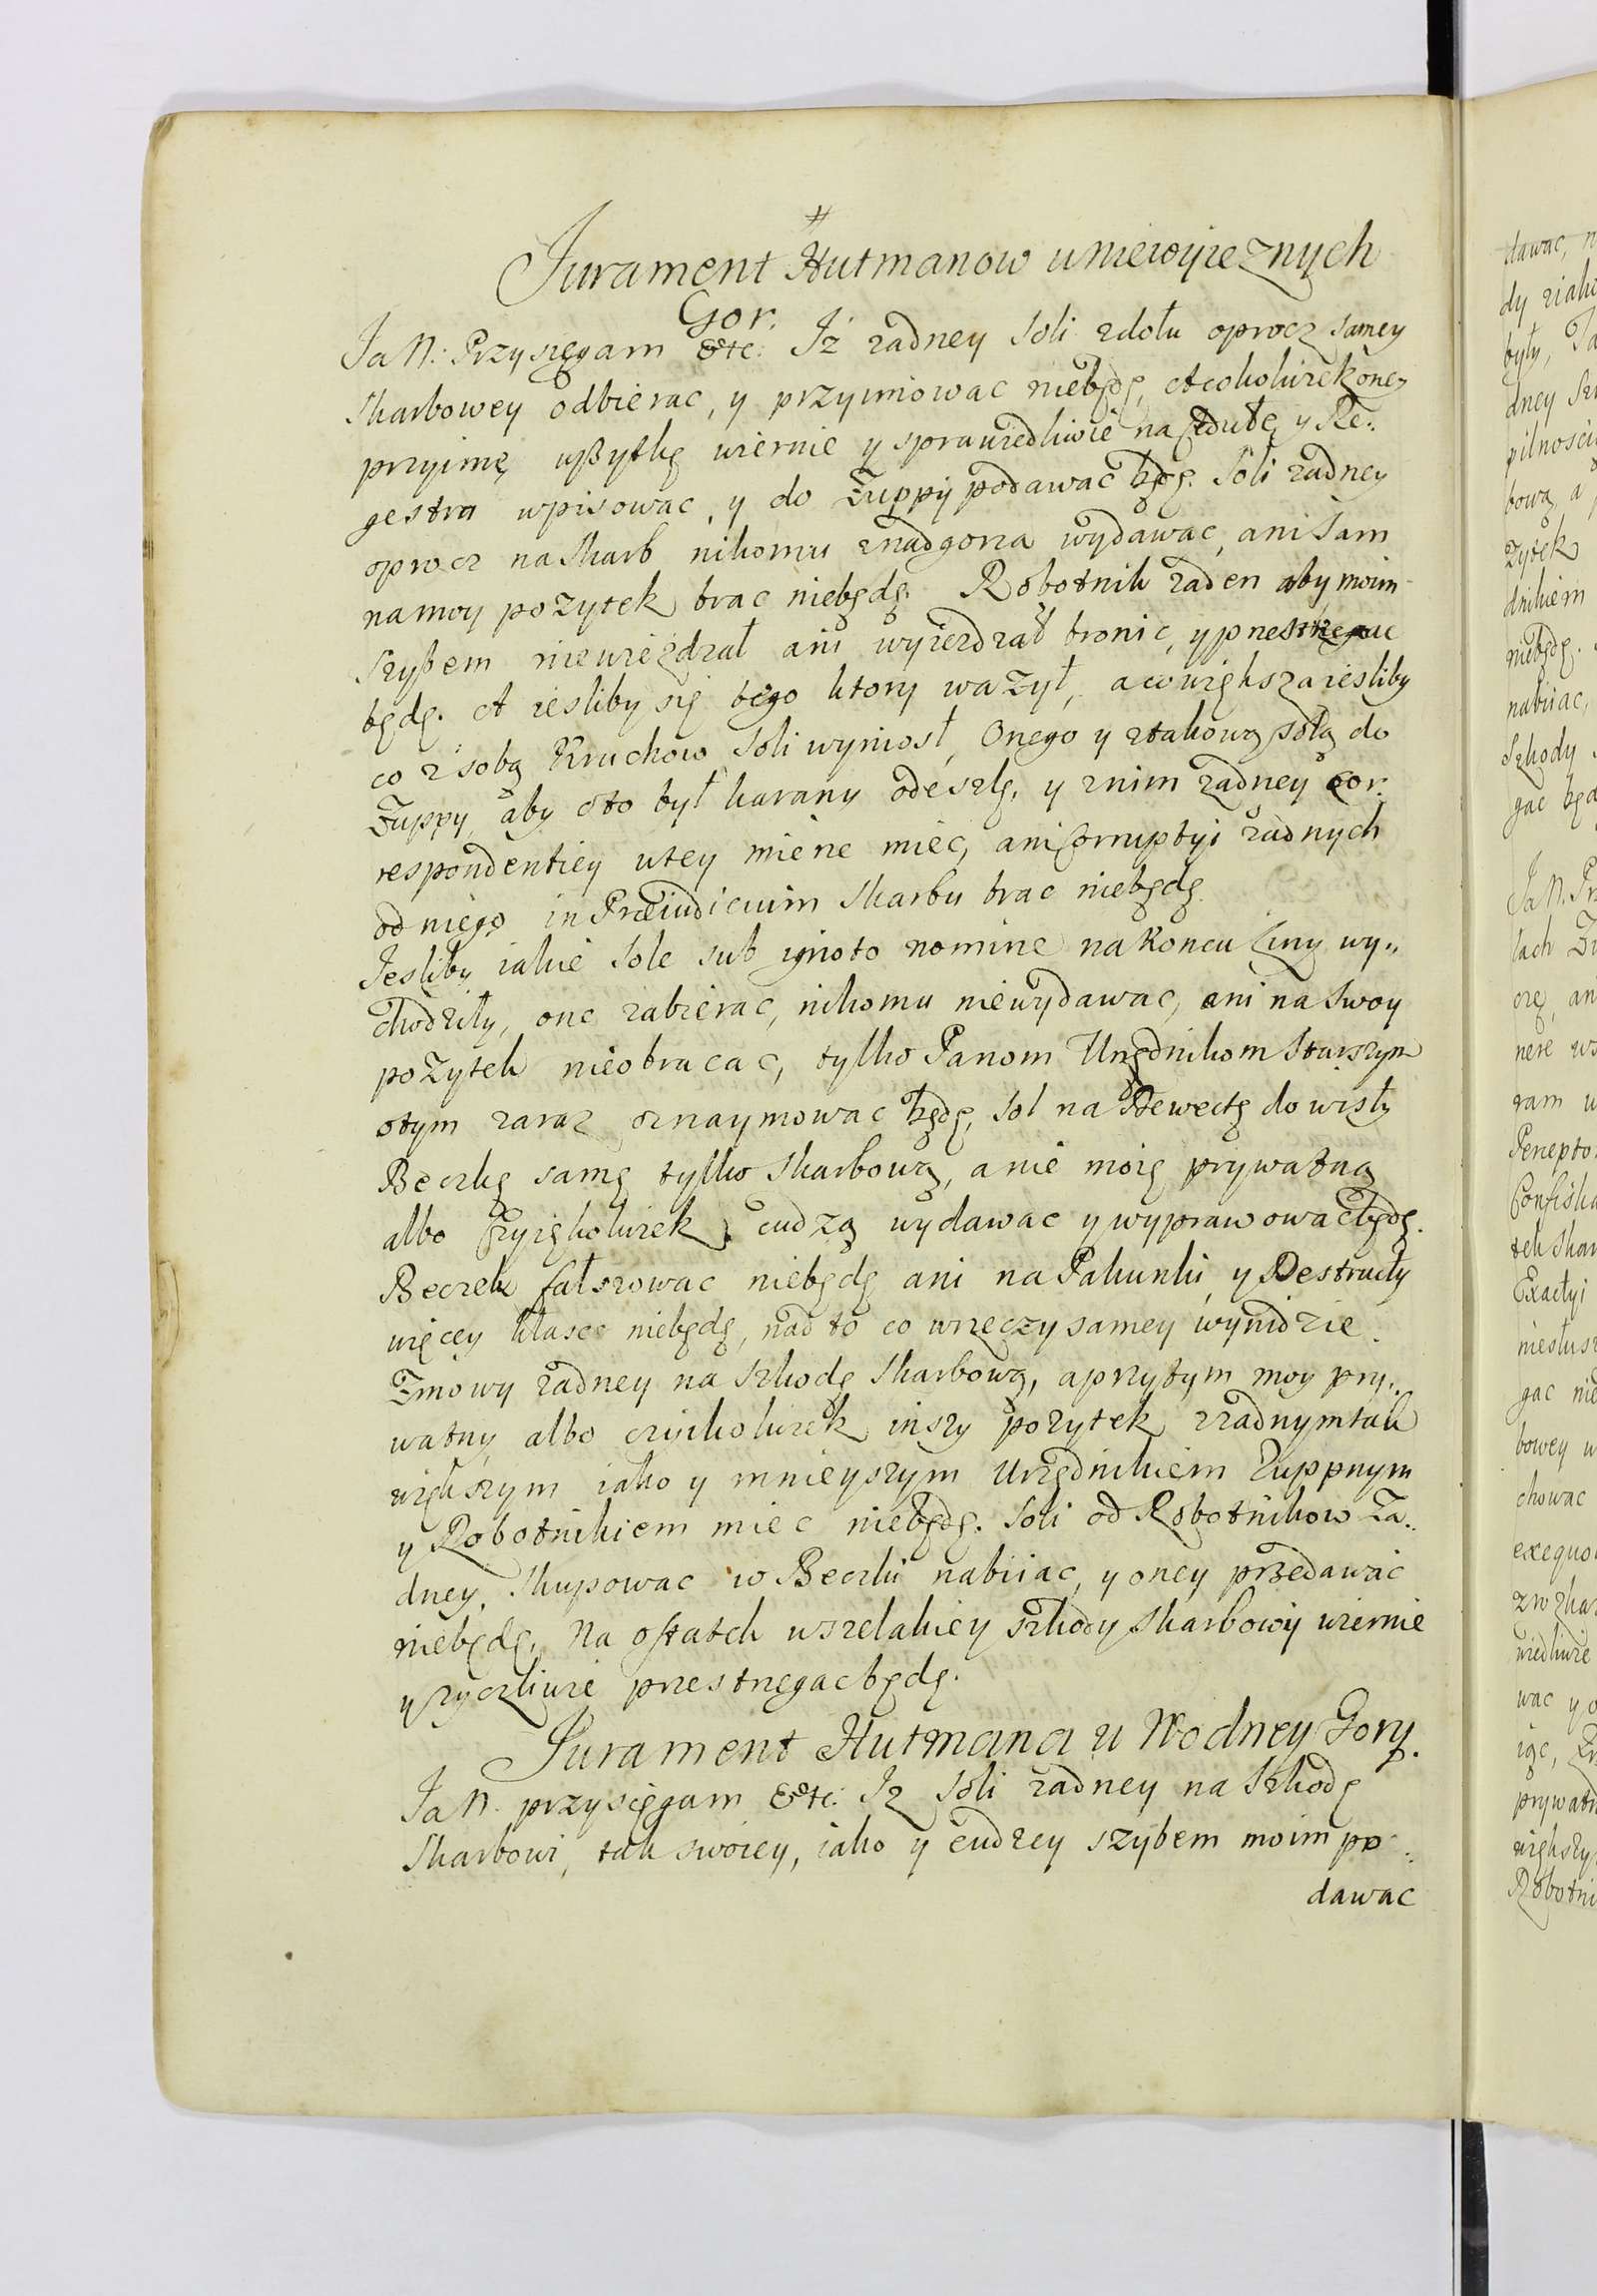 #
Jurament Hutmanow u niewyieznych
Gor.
Ja N. Przysięgam &tc: Iż zadney Soli zdołu oprocz samey
Skarbowey odbierac, y przyimowac niebędę, Acokolwiek oney
przyimę wszytkę wiernie y sprawiedliwie na Cedułę y Re:.
gestra wpisowac, y do Zuppy podawac będę. Soli zadney
oprocz na Skarb nikomu znadgorza wydawac, ani Sam
na moy pozytek brac niebędę. Robotnik zaden aby moim
Szybem niewiezdzał ani wyiezdzał bronic, y przestrzegac
będę. A iesliby się tego ktory wazył, a co większa iesliby
co z sobą Kruchow Soli wyniosł, Onego y ztakową solą do
Zuppy, aby oto był karany odeszlę, y znim zadney cor:
respondentiey wtey mierze miec, ani Corruptyi zadnych
od niego in Præiudicium Skarbu brac niebędę.
Jesliby iakie Sole sub ignoto nomine na Koncu Liny wy:,
chodziły, one zabierac, nikomu niewydawac, ani na Swoy
pozytek nieobracac, tylko Panom Urzędnikom Starszym
otym zaraz oznaymowac będę, Sol na do wisły
Beczkę samę tylko Skarbową, a nie moię prywatną
albo Czyiękolwiek cudzą wydawac y wyprawowac będę.
Beczek fałszowac niebędę ani na Pakunki, y Destruęty
więcey kłasce niebędę, nad to co wrzeczy samey wynidzie.
Zmowy zadney na Szkodę Skarbową, a przytym moy pry:.
watny albo czyikolwiek inszy pozytek zzadnym tak
większym iako y mnieyszym Urzędnikiem Zuppnym
y Robotnikiem miec niebędę. Soli od Robotnikow Za:.
dney, Skupowac w Beczki nabiiac, y oney przedawac
niebędę, Na ostatek wszelakiey szkody Skarbowy wiernie
y zyczliwie przestrzegac będę.
Jurament Hutmana u Wodney Gory.
Ja N. przysięgam &tc: Iz Soli zadney na Szkodę
Skarbowi, tak swoiey, iako y cudzey szybem moim po:.
dawac